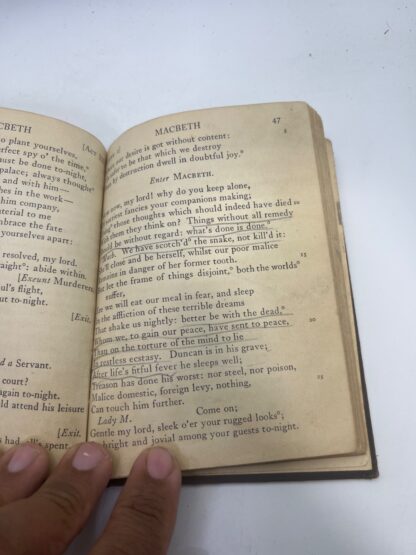 CBETH
[Act
o plant yourselves.
erfect spy o' the time,°
must be done to-night,
palace; always thought°
and with him—
ches in the work—
him company,
aterial to me
embrace the fate
yourselves apart:
resolved, my lord.
raight°: abide within.
[Exeunt Murderers
ul's flight,
out to-night.
[Exit.
d a Servant.
court?
gain to-night.
ld attend his leisure
[Exit.
s had, all's spent,
MACBETH
47
our desire is got without content:
5
to be that which we destroy
by destruction dwell in doubtful joy.°
Enter MACBETH.
now, my lord! why do you keep alone,
fancies your companions making;
those thoughts which should indeed have died
10
them they think on? Things without all remedy
be without regard: what's done is done.
We have scotch'd° the snake, not kill'd it:
close and be herself, whilst our poor malice
15
in danger of her former tooth.
let the frame of things disjoint,° both the worlds°
suffer,
we will eat our meal in fear, and sleep
the affliction of these terrible dreams
That shake us nightly: better be with the dead,°
Whom we, to gain our peace, have sent to peace,
20
Than on the torture of the mind to lie
In restless ecstasy. Duncan is in his grave;
After life's fitful fever he sleeps well;
Treason has done his worst: nor steel, nor poison,
25
Malice domestic, foreign levy, nothing,
Can touch him further.
Lady M. Come on;
Gentle my lord, sleek o'er your rugged looks°;
bright and jovial among your guests to-night.